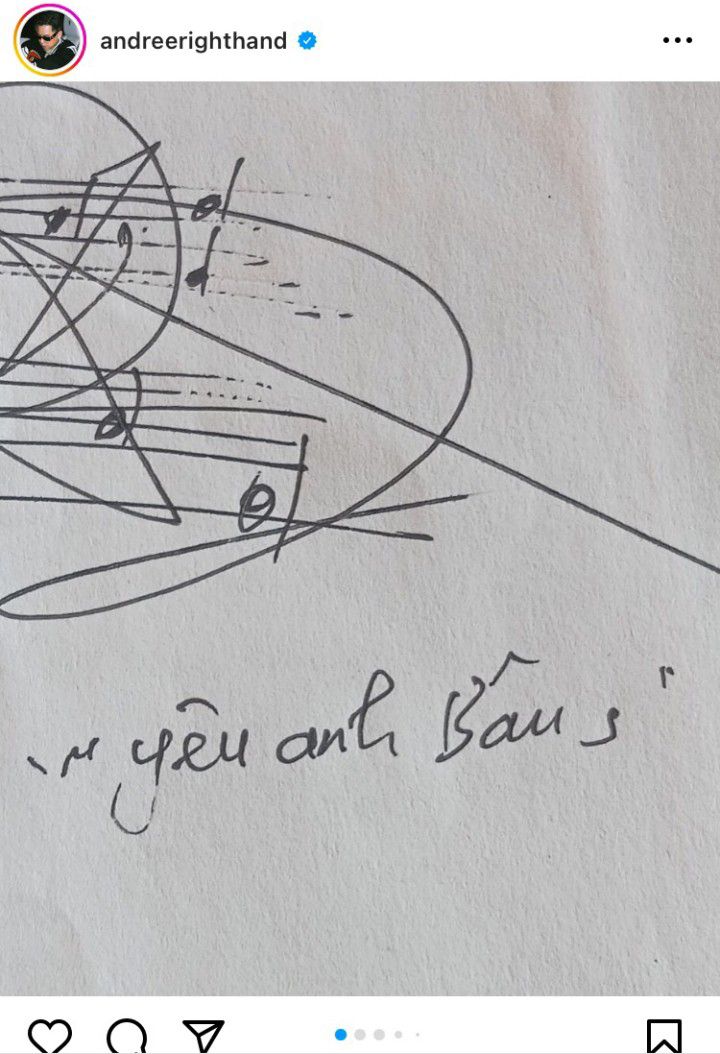 andreerighthand
"yêu anh Bâu s"